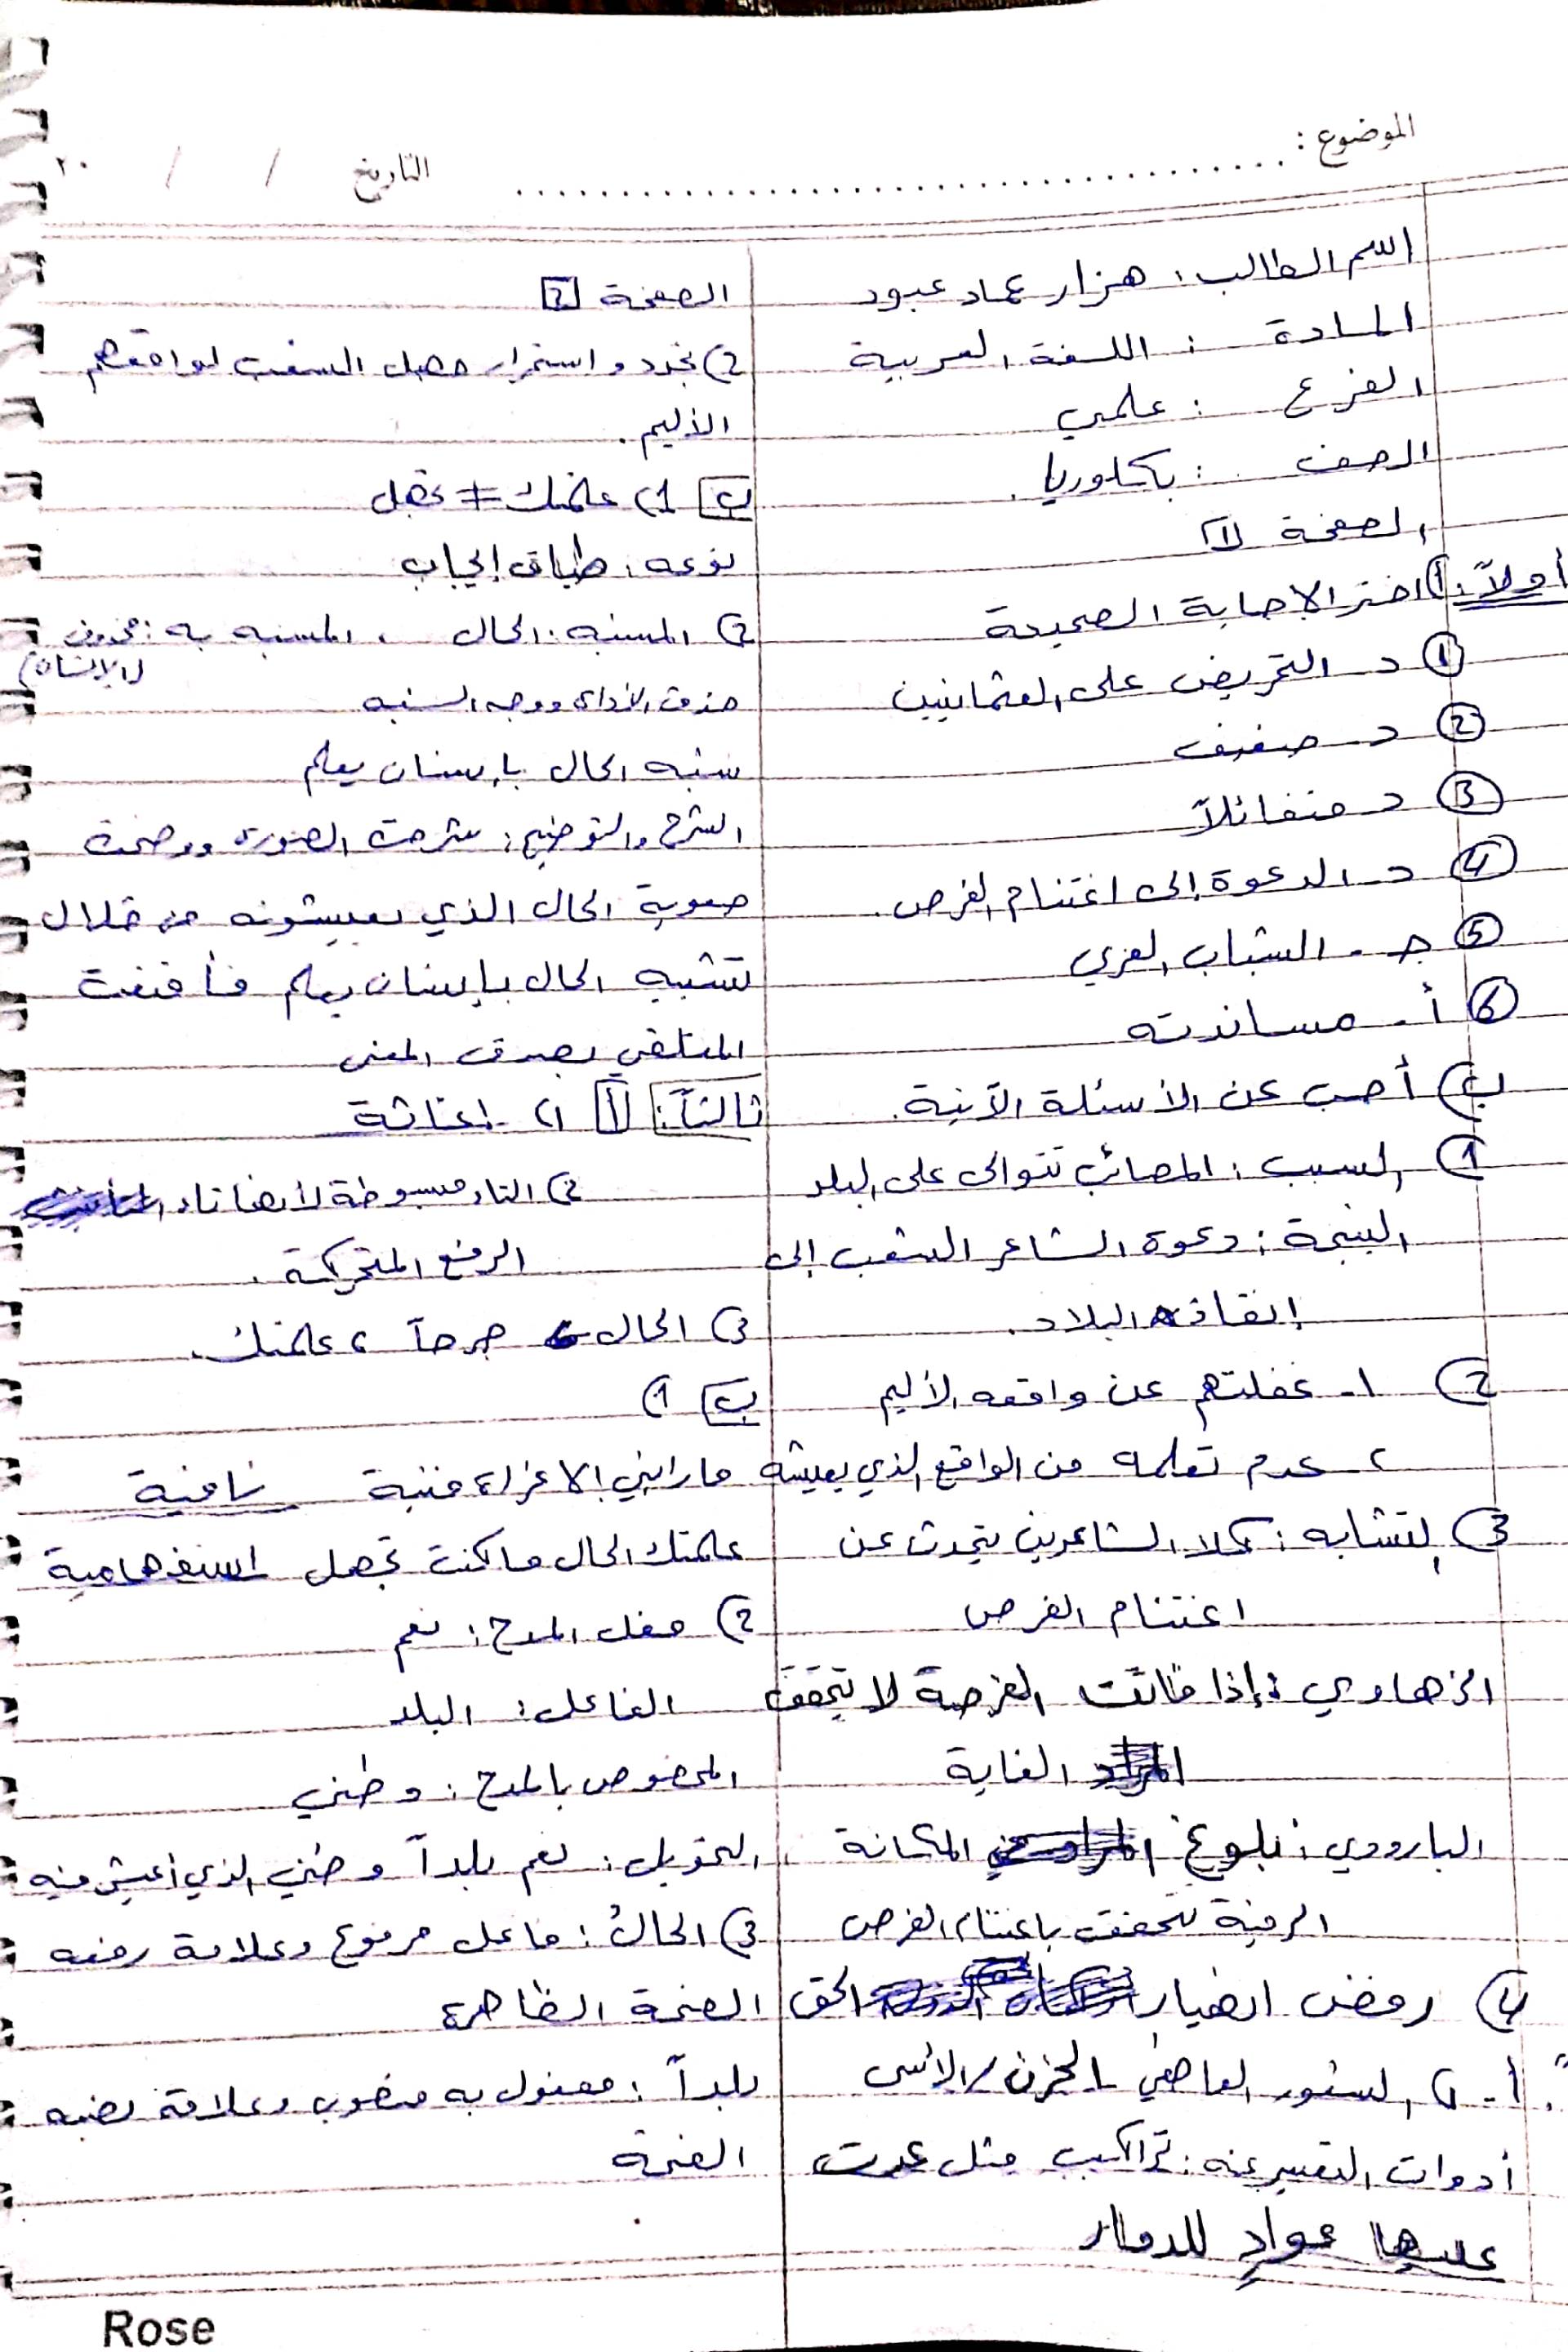 الموضوع : ........................................ التاريخ / / ٢٠
اسم الطالب : هزار عماد عبود
المادة : اللغة العربية
الفرع : علمي
الصف : بكلوريا.
الصفحة 1
أولاً: أ) اختر الإجابة الصحيحة
1 د. التحريض على العثمانيين
2 د. ضعيف
3 د. متفائلاً
4 د. الدعوة إلى اغتنام الفرص.
5 جـ. الشباب العربي
6 أ. مساندته
ب) أجب عن الأسئلة الآتية.
1) السبب : المصائب تتوالى على البلد
النتيجة : دعوة الشاعر الشعب إلى
إنقاذ البلاد.
2) 1- غفلتهم عن واقعه الأليم
2- عدم تعلمه من الواقع الذي يعيشه
3) التشابه : كلا الشاعرين يتحدث عن
اغتنام الفرص
الزهاوي : إذا فاتت الفرصة لا تتحقق
الغاية
البارودي : بلوغ المكانة
الرفيعة تتحقق باغتنام الفرص
4) رفض انهيار الحق
أ- 1) الشعور العاطفي الحزن / الأسى
أدوات التعبير عنه : تراكيب مثل عدت
عليها عوادٍ للدمار
الصفحة 2
2) تجدد و استمرار جهل الشعب لواقعهم
الأليم.
ب 1) علمتك ≠ تجهل
نوعه : طباق إيجاب
2) المشبه : الحال ، المشبه به : محذوف
(الإنسان)
حذف الأداة ووجه الشبه
شبه الحال بإنسان يعلم
الشرح والتوضيح : شرحت الصورة ووضحت
صعوبة الحال الذي يعيشونه من خلال
تشبيه الحال بإنسان يعلم فأقنعت
المتلقي بصدق المعنى
ثالثاً: أ 1) إغاثة
2) التاء مبسوطة لأنها تاء
الرفع المتحركة.
3) الحال ، جرحاً ، علمتك.
ب 1)
ما رابني إلا غرارة فتية نافية
علمتك الحال ما كنت تجهل استفهامية
2) فعل المدح : نعم
الفاعل : البلد
المخصوص بالمدح : وطني
التحويل : نعم بلداً وطني الذي أعيش فيه
3) الحالُ : فاعل مرفوع وعلامة رفعه
الضمة الظاهرة
بلداً : مفعول به منصوب وعلامة نصبه
الفتحة
Rose